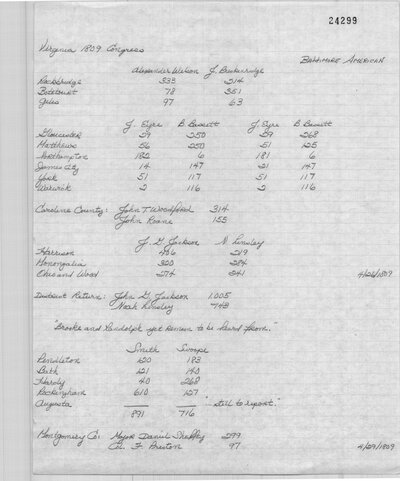 24299
Virginia 1809 Congress
BALTIMORE AMERICAN
Alexander Wilson J. Breckenridge
Rockbridge 333 214
Botetourt 78 351
Giles 97 63
J. Eyre B. Bassett J. Eyre B. Bassett
Gloucester 29 250 29 268
Matthews 56 250 51 125
Northampton 182 6 181 6
James City 14 147 21 147
York 51 117 51 117
Warwick 2 116 2 116
Caroline County: John T. Woodford 314
John Roane 155
J. G. Jackson N. Linsley
Harrison 436 219
Monongalia 300 284
Ohio and Wood 274 241 4/26/1809
District Return: John G. Jackson 1005
Noah Linsley 743
"Brooke and Randolph yet remain to be heard from."
Smith Swoope
Pendleton 120 183
Bath 121 140
Hardy 40 268
Rockingham 610 127
Augusta "still to report."
891 716
Montgomery Co: Major Daniel Sheffey 299
Col. F. Preston 97 4/29/1809